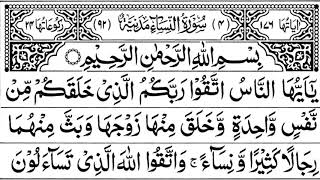 اٰیَاتُهَا ١٧٦ (٤) سُوْرَةُ النِّسَآءِ مَدَنِيَّةٌ (٩٢) رُكُوْعَاتُهَا ٢٤
بِسْمِ اللّٰهِ الرَّحْمٰنِ الرَّحِيْمِ
يٰۤاَيُّهَا النَّاسُ اتَّقُوْا رَبَّكُمُ الَّذِيْ خَلَقَكُمْ مِّنْ
نَّفْسٍ وَّاحِدَةٍ وَّخَلَقَ مِنْهَا زَوْجَهَا وَبَثَّ مِنْهُمَا
رِجَالًا كَثِيْرًا وَّنِسَآءً ۚ وَاتَّقُوا اللّٰهَ الَّذِيْ تَسَآءَلُوْنَ